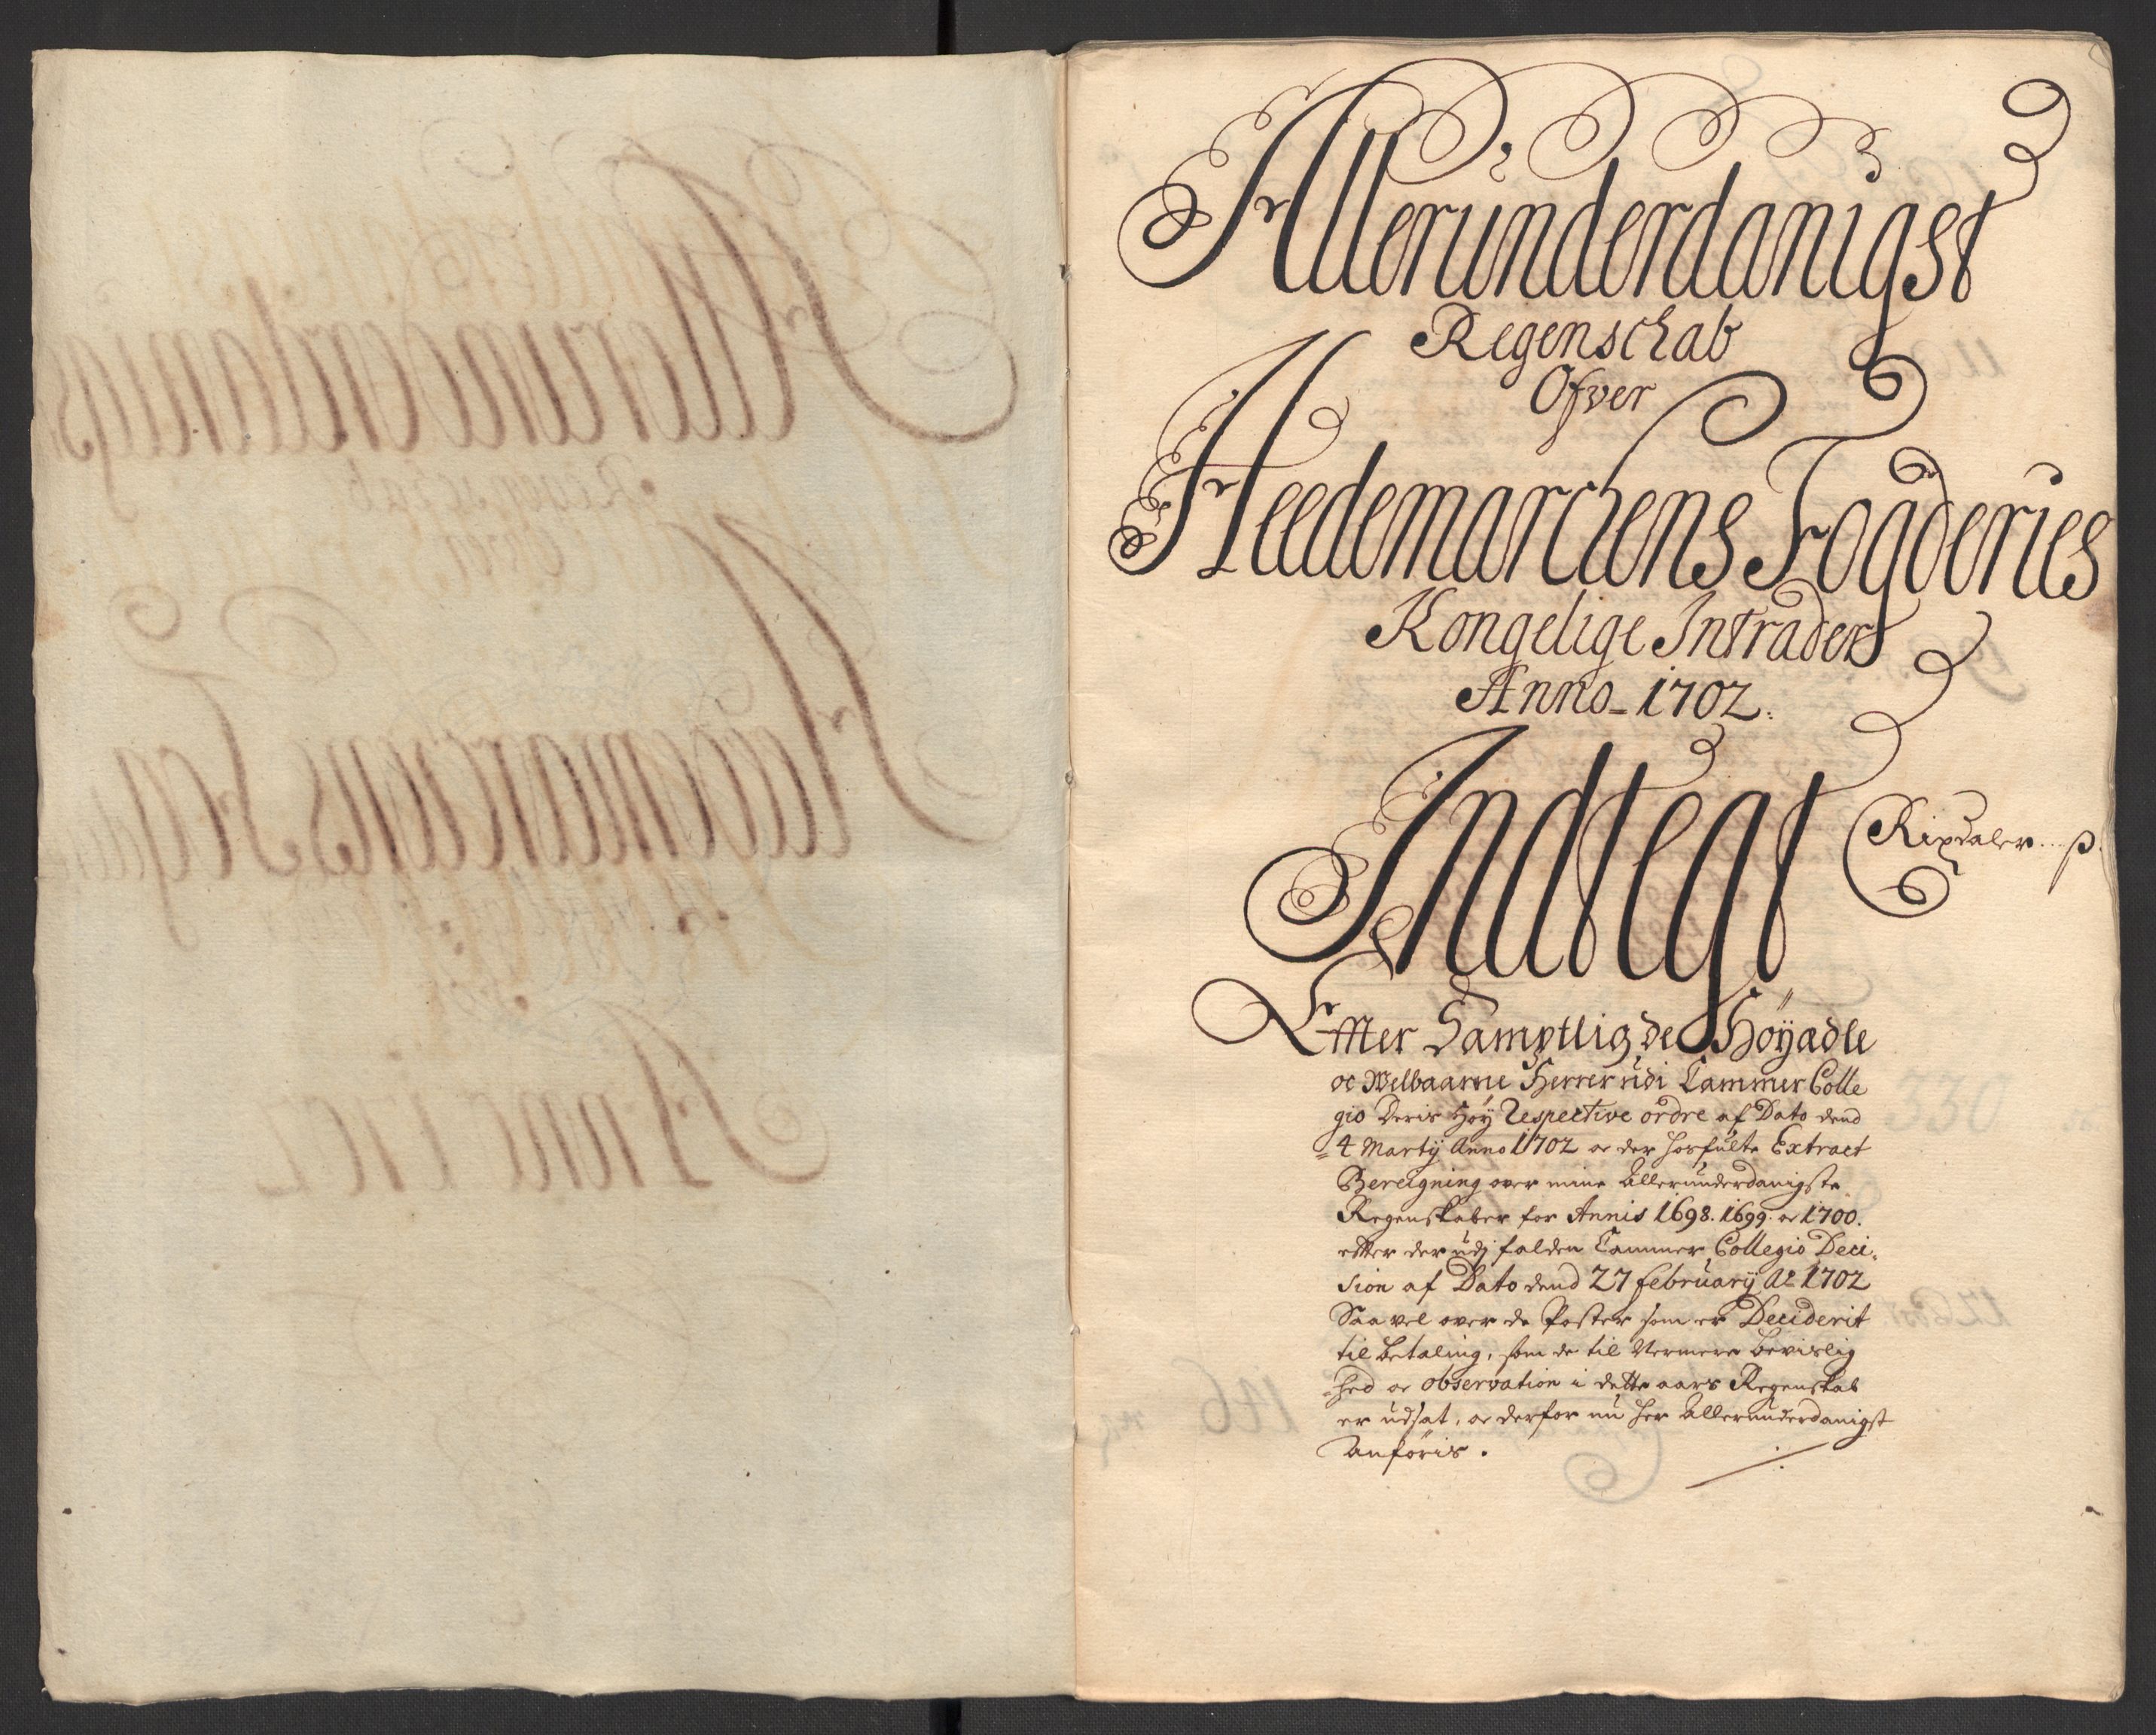 Allerunderdanigst
Regenschab
Ofver
Heedemarchens Fogderies
Kongelige Intrader
Anno 1702.
Indtegt
Rixdaler ... β
Effter Samptlig de Höÿadle
oc Welbaarne Herrer udi Cammer Colle
gio Deris Höÿ Respective ordre af Dato dend
4 Martÿ Anno 1702 oc der hosfulte Extract
Bereigning over mine Allerunderdanigste
Regenskaber for Annis 1698. 1699. oc 1700.
effter der udj falden Cammer Collegio Deci,
sion af Dato dend 27 februarÿ Ao 1702
Saa vel over de Poster som er Deciderit
til betaling, som de til Nermere bevislig
hed oc observation i dette aars Regenskab
er udsat, oc derfor nu her Allerunderdanigst
Anföris.